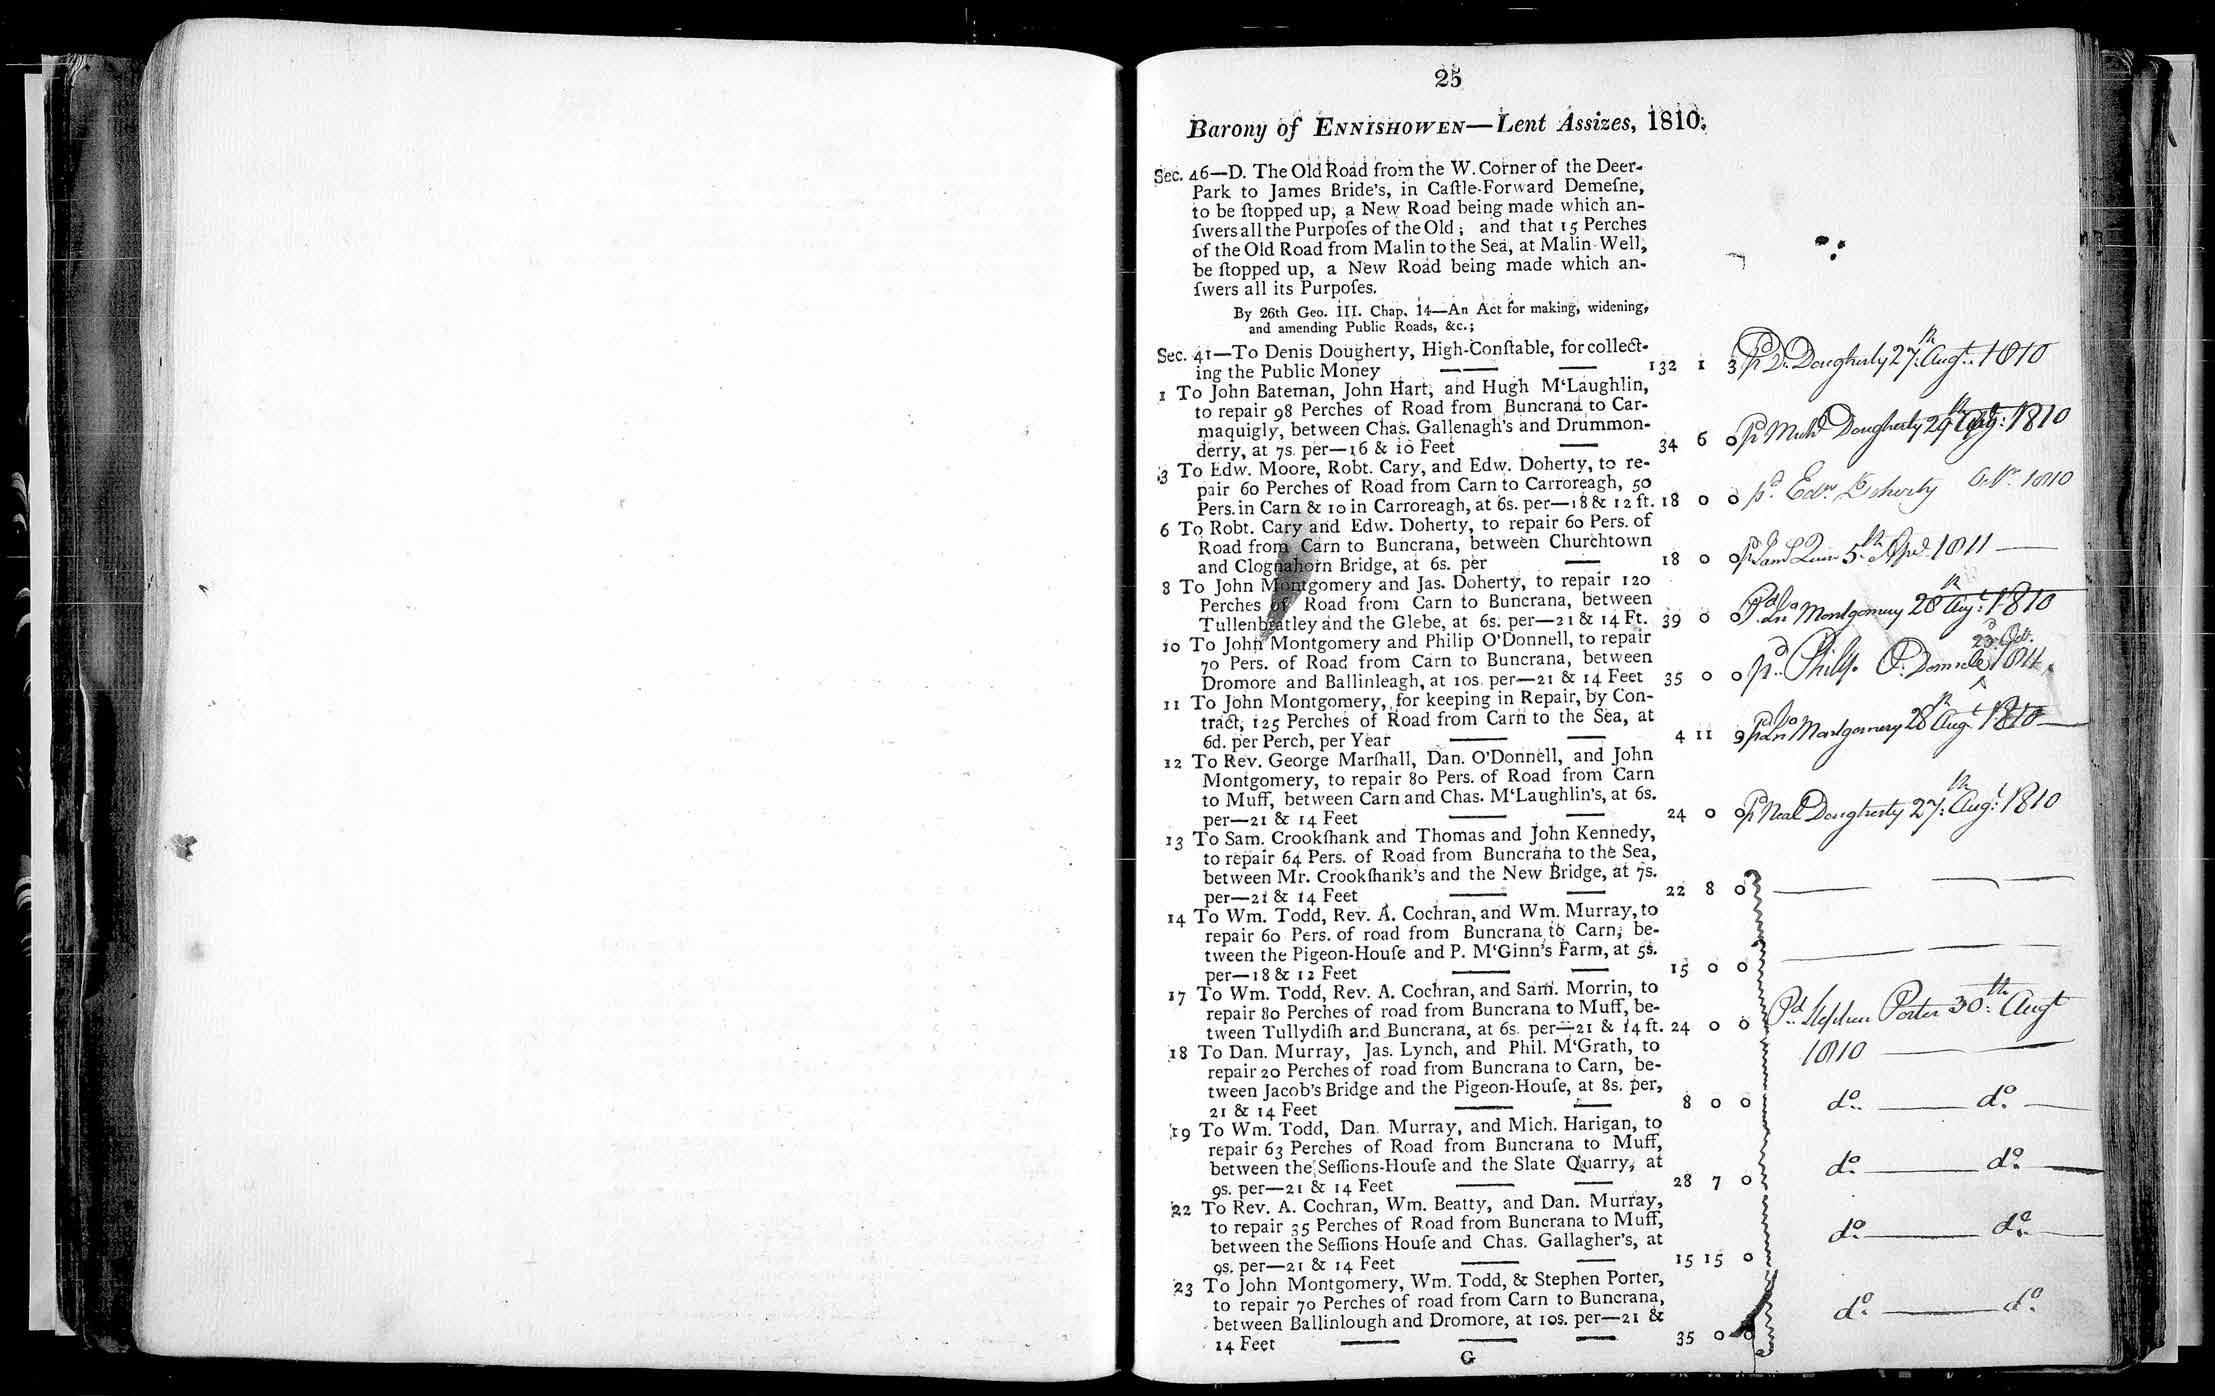 25
Barony of ENNISHOWEN—Lent Assizes, 1810.
Sec. 46—D. The Old Road from the W. Corner of the Deer-
Park to James Bride's, in Caſtle-Forward Demeſne,
to be ſtopped up, a New Road being made which an-
ſwers all the Purpoſes of the Old; and that 15 Perches
of the Old Road from Malin to the Sea, at Malin Well,
be ſtopped up, a New Road being made which an-
ſwers all its Purpoſes.
By 26th Geo. III. Chap. 14—An Act for making, widening,
and amending Public Roads, &c.;
Sec. 41—To Denis Dougherty, High-Conſtable, for collect-
ing the Public Money — — 132 1 3 Pd D. Dougherty 27th Augt. 1810
1 To John Bateman, John Hart, and Hugh M'Laughlin,
to repair 98 Perches of Road from Buncrana to Car-
maquigly, between Chas. Gallenagh's and Drummon-
derry, at 7s. per—16 & 10 Feet — 34 6 0 Pd Michl Dougherty 29th Augt: 1810
3 To Edw. Moore, Robt. Cary, and Edw. Doherty, to re-
pair 60 Perches of Road from Carn to Carroreagh, 50
Pers. in Carn & 10 in Carroreagh, at 6s. per—18 & 12 ft. 18 0 0 pd. Edwd Doherty Octr. 1810
6 To Robt. Cary and Edw. Doherty, to repair 60 Pers. of
Road from Carn to Buncrana, between Churchtown
and Clognahorn Bridge, at 6s. per — 18 0 0 5th Apl. 1811 —
8 To John Montgomery and Jas. Doherty, to repair 120
Perches of Road from Carn to Buncrana, between
Tullenbratley and the Glebe, at 6s. per—21 & 14 Ft. 39 0 0 Pd. Jno Montgomery 28th Augt. 1810
10 To John Montgomery and Philip O'Donnell, to repair
70 Pers. of Road from Carn to Buncrana, between
Dromore and Ballinleagh, at 10s. per—21 & 14 Feet 35 0 0 pd. Philip O. Donnele 23d Octr. 1811
11 To John Montgomery, for keeping in Repair, by Con-
tract, 125 Perches of Road from Carn to the Sea, at
6d. per Perch, per Year — — 4 11 9 pd Jno Montgomery 28th Augt 1810 —
12 To Rev. George Marſhall, Dan. O'Donnell, and John
Montgomery, to repair 80 Pers. of Road from Carn
to Muff, between Carn and Chas. M'Laughlin's, at 6s.
per—21 & 14 Feet — — 24 0 0 Pd Neal Dougherty 27th Augt 1810
13 To Sam. Crookſhank and Thomas and John Kennedy,
to repair 64 Pers. of Road from Buncrana to the Sea,
between Mr. Crookſhank's and the New Bridge, at 7s.
per—21 & 14 Feet — — 22 8 0 — —
14 To Wm. Todd, Rev. A. Cochran, and Wm. Murray, to
repair 60 Pers. of road from Buncrana to Carn, be-
tween the Pigeon-Houſe and P. M'Ginn's Farm, at 5s.
per—18 & 12 Feet — — 15 0 0 — —
17 To Wm. Todd, Rev. A. Cochran, and Sam. Morrin, to
repair 80 Perches of road from Buncrana to Muff, be-
tween Tullydiſh and Buncrana, at 6s. per—21 & 14 ft. 24 0 0 Pd. Stephen Porter 30th Augt
1810 — —
18 To Dan. Murray, Jas. Lynch, and Phil. M'Grath, to
repair 20 Perches of road from Buncrana to Carn, be-
tween Jacob's Bridge and the Pigeon-Houſe, at 8s. per,
21 & 14 Feet — — 8 0 0 do. — do. —
19 To Wm. Todd, Dan. Murray, and Mich. Harigan, to
repair 63 Perches of Road from Buncrana to Muff,
between the Seſſions-Houſe and the Slate Quarry, at
9s. per—21 & 14 Feet — — 28 7 0 do. — do. —
22 To Rev. A. Cochran, Wm. Beatty, and Dan. Murray,
to repair 35 Perches of Road from Buncrana to Muff,
between the Seſſions Houſe and Chas. Gallagher's, at
9s. per—21 & 14 Feet — — 15 15 0 do. — do. —
23 To John Montgomery, Wm. Todd, & Stephen Porter,
to repair 70 Perches of road from Carn to Buncrana,
between Ballinlough and Dromore, at 10s. per—21 &
14 Feet — — — 35 0 0 do. — do.
G